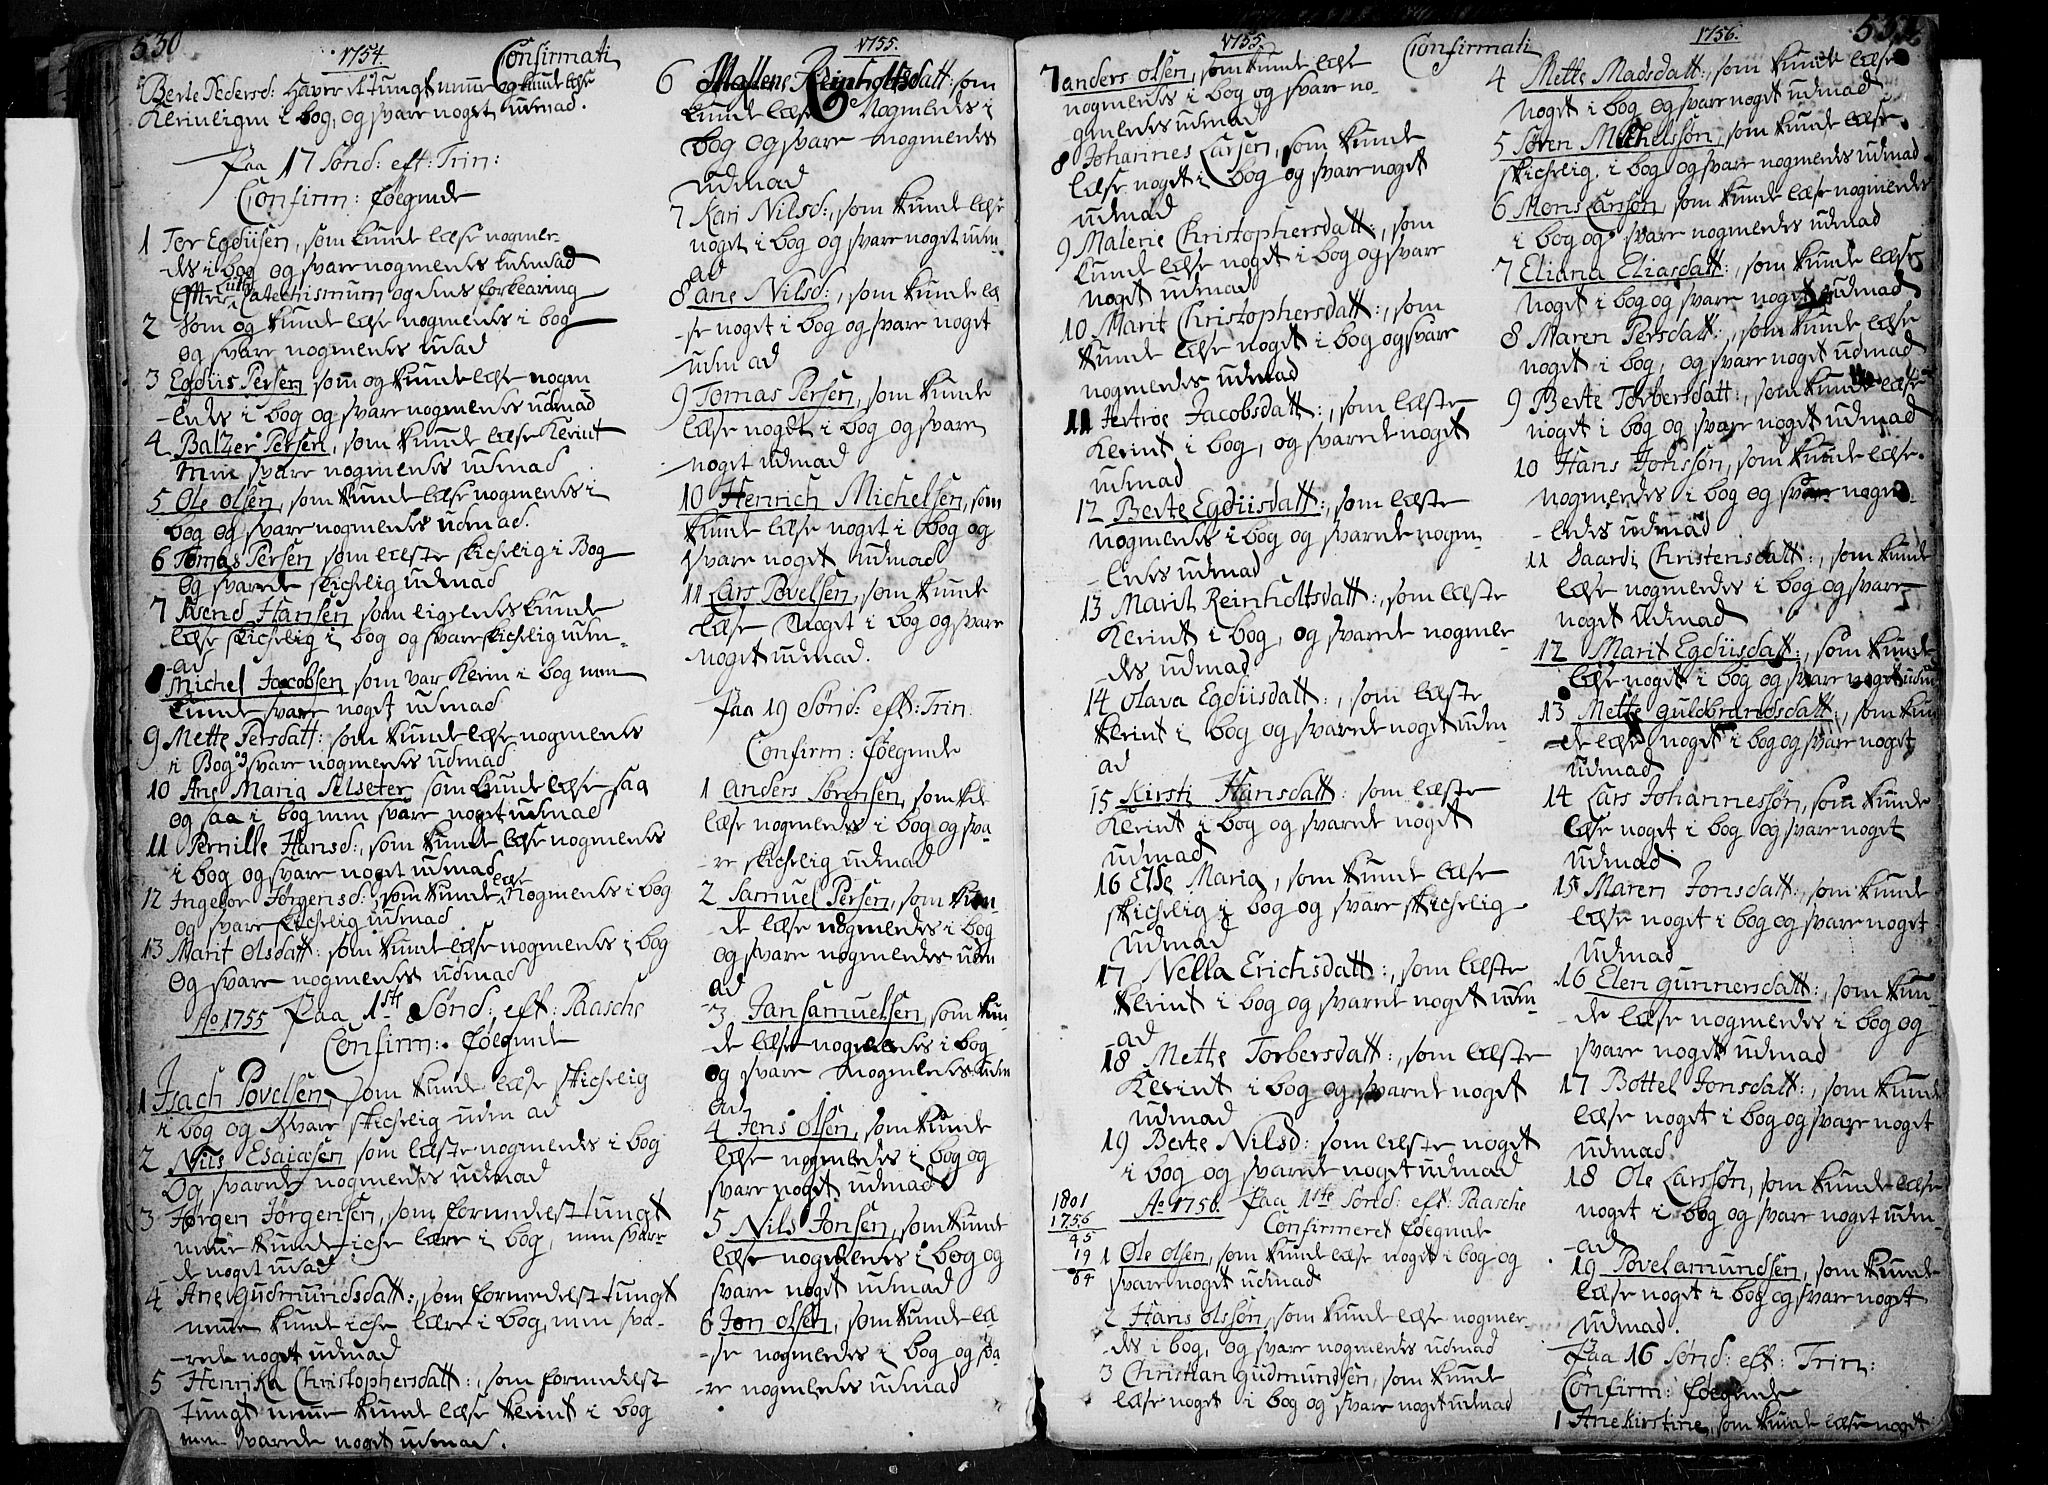 530
1754. Confirmati
Berte Pedersd: haver et tungt nemme og kunde læse
i bog, og svare noget udenad.
Paa 17 Sønd: eft: Trin:
Confirm: følgende
1 Tor Egdiisen, som kunde læse nogenle-
des i bog og svare nogenledes udenad
Efter Luth: Catechismum og dens forklaring
2 som og kunde læse nogenledes i bog
og svare nogenledes udad
3 Egdiis Persen som og kunde læse nogen
-ledes i bog og svare nogenledes udenad
4 Balzer Persen, som kunde læse Kleint
men svare nogenledes udenad
5 Ole Olsen, som kunde læse nogenledes i
bog og svare nogenledes udenad.
6 Tomas Persen som læste skichelig i Bog
og svarede skichelig udenad
7 Svend Hansen som ligeledes kunde
læse skichelig i bog og svare skichelig uden-
-ad
8 Michel Jacobsen som var Klein i bog men
kunde svare noget udenad
9 Mette Persdatt: som kunde læse nogenledes
i Bog og svare nogenledes udenad
10 Ane Maria Selseter som kunde læse saa
og saa i bog men svare noget udenad
11 Pernille Hansd:, som kunde læse nogenledes
i bog og svare noget udenad
12 Ingebor Jørgensd: som kunde læse nogenledes i bog
og svare skichelig udenad
13 Marit Olsdatt: som kunde læse nogenledes i bog
og svare nogenledes udenad
Ao 1755 Paa 1ste Sønd: eft: Paasche
Confirm: følgende
1 Isach Povelsen, som kunde læse skichelig
i bog og svare skichelig uden ad
2 Niis Esaiasen som læste nogenledes i bog
og svarede nogenledes udenad
3 Jørgen Jørgensen, som formedelst tungt
nemme kunde iche lære i bog, men svare-
-de noget udad
4 Ane Gudmundsdatt:, som formedelst tungt
nemme kunde iche lære i bog, men sva-
-rede noget udenad
5 Henrika Christophersdatt:, som formedelst
tungt nemme kunde læse Kleint i bog
men svarede noget udenad.
1755.
6 Mallene Reinholtsdatt: som
kunde læse nogenledes i
bog og svare nogenledes
udenad
7 Kari Nilsd:, som kunde læse
noget i bog og svare noget uden-
ad
8 Ane Nilsd:, som kunde læ
-se noget i bog og svare noget
uden ad
9 Tomas Persen, som kunde
læse noget i bog og svare
noget udenad
10 Henrich Michelsen, som
kunde læse noget i bog og
svare noget udenad
11 Lars Povelsen, som kunde
læse noget i bog og svare
noget udenad.
Paa 19 Sønd: eft: Trin
Confirm: følgende
1 Anders Sørensen, som ku
læse nogenledes i bog og sva-
-re skichelig udenad
2 Samuel Persen, som kun-
-de læse nogenledes i bog
og svare nogenledes uden
ad
3 Jan Samuelsen, som kun-
-de læse nogenledes i bog
og svare nogenledes uden
ad
4 Jens Olsen, som kunde
læse nogenledes i bog og
svare noget udenad
5 Nils Jonsen, som kunde
læse nogenledes i bog og
svare noget udenad
6 Jon Olsen, som kunde læ
-se nogenledes i bog og sva
-re nogenledes udenad
1755. Confirmati
7 Anders Olsen, som kunde læse
nogenledes i bog og svare no-
genledes udenad
8 Johannes Larsen, som kunde
læse noget i bog og svare noget
udenad
9 Malene Christophersdatt:, som
kunde læse noget i bog og svare
noget udenad
10 Marit Christophersdatt:, som
kunde læse noget i bog og svare
nogenledes udenad
11 Jertroe Jacobsdatt:, som læste
Kleint i bog, og svarede noget
udenad
12 Berte Egdiisdatt:, som læste
nogenledes i bog og svarede nogen-
-ledes udenad
13 Marit Reinholtsdatt:, som læste
Kleint i bog, og svarede nogenle-
des udenad
14 Olava Egdiisdatt:, som læste
Kleint i bog og svarede noget uden-
ad
15 Kirsti Hansdatt: som læste
Kleint i bog og svarede noget
udenad
16 Else Maria, som kunde læse
skichelig i bog og svare skichelig
udenad
17 Nella Erichsdatt:, som læste
Kleint i bog og svarede noget uden-
-ad
18 Mette Torbersdatt:, som læste
Kleint i bog og svarede noget
udenad
19 Berte Nilsd: som læste noget
i bog og svarede noget udenad
1801
1756
45
19
64
Ao 1756. Paa 1ste Sønd: eft: Paasche
Confirmeret følgende
1 Ole Olsen, som kunde læse noget i bog og
svare noget udenad
2 Hans Olssøn, som kunde læse nogenle-
-des i bog, og svare nogenledes udenad
3 Christian Gudmundsen, som kunde
læse noget i bog og svare noget udenad
1756. 531
4 Mette Madsdatt:, som kunde læse
noget i bog og svare noget udenad
5 Søren Michelssøn, som kunde læse
skichelig i bog og svare nogenledes udenad
6 Mons Larsøn, som kunde læse nogenledes
i bog og svare nogenledes udenad
7 Eliana Eliasdatt:, som kunde læse
noget i bog og svare noget udenad
8 Maren Persdatt:, som kunde læse
noget i bog, og svare noget udenad
9 Berte Torbersdatt:, som kunde læse
noget i bog og svare noget udenad
10 Hans Jonssøn, som kunde læse
nogenledes i bog og svare nogen-
-ledes udenad
11 Daardi Christensdatt:, som kunde
læse nogenledes i bog og svare
noget udenad
12 Marit Egdiisdatt:, som kunde
læse noget i bog og svare noget uden
13 Mette Guldbrandsdatt:, som kun
-de læse noget i bog og svare noget
udenad
14 Lars Johannessøn, som kunde
læse noget i bog og svare noget
udenad
15 Maren Jonsdatt:, som kunde
læse noget i bog og svare noget
udenad
16 Elen Gunnersdatt:, som kun-
-de læse nogenledes i bog og
svare noget udenad
17 Bottel Jonsdatt:, som kunde
læse noget i bog og svare noget
udenad.
18 Ole Larssøn, som kunde læse
noget i bog og svare noget uden-
-ad
19 Povel Amundsen, som kunde
læse noget i bog og svare noget
udenad.
Paa 16 Sønd: eft: Trin:
Confirm: følgende
1 Ane Kirstine, som kunde læse noget